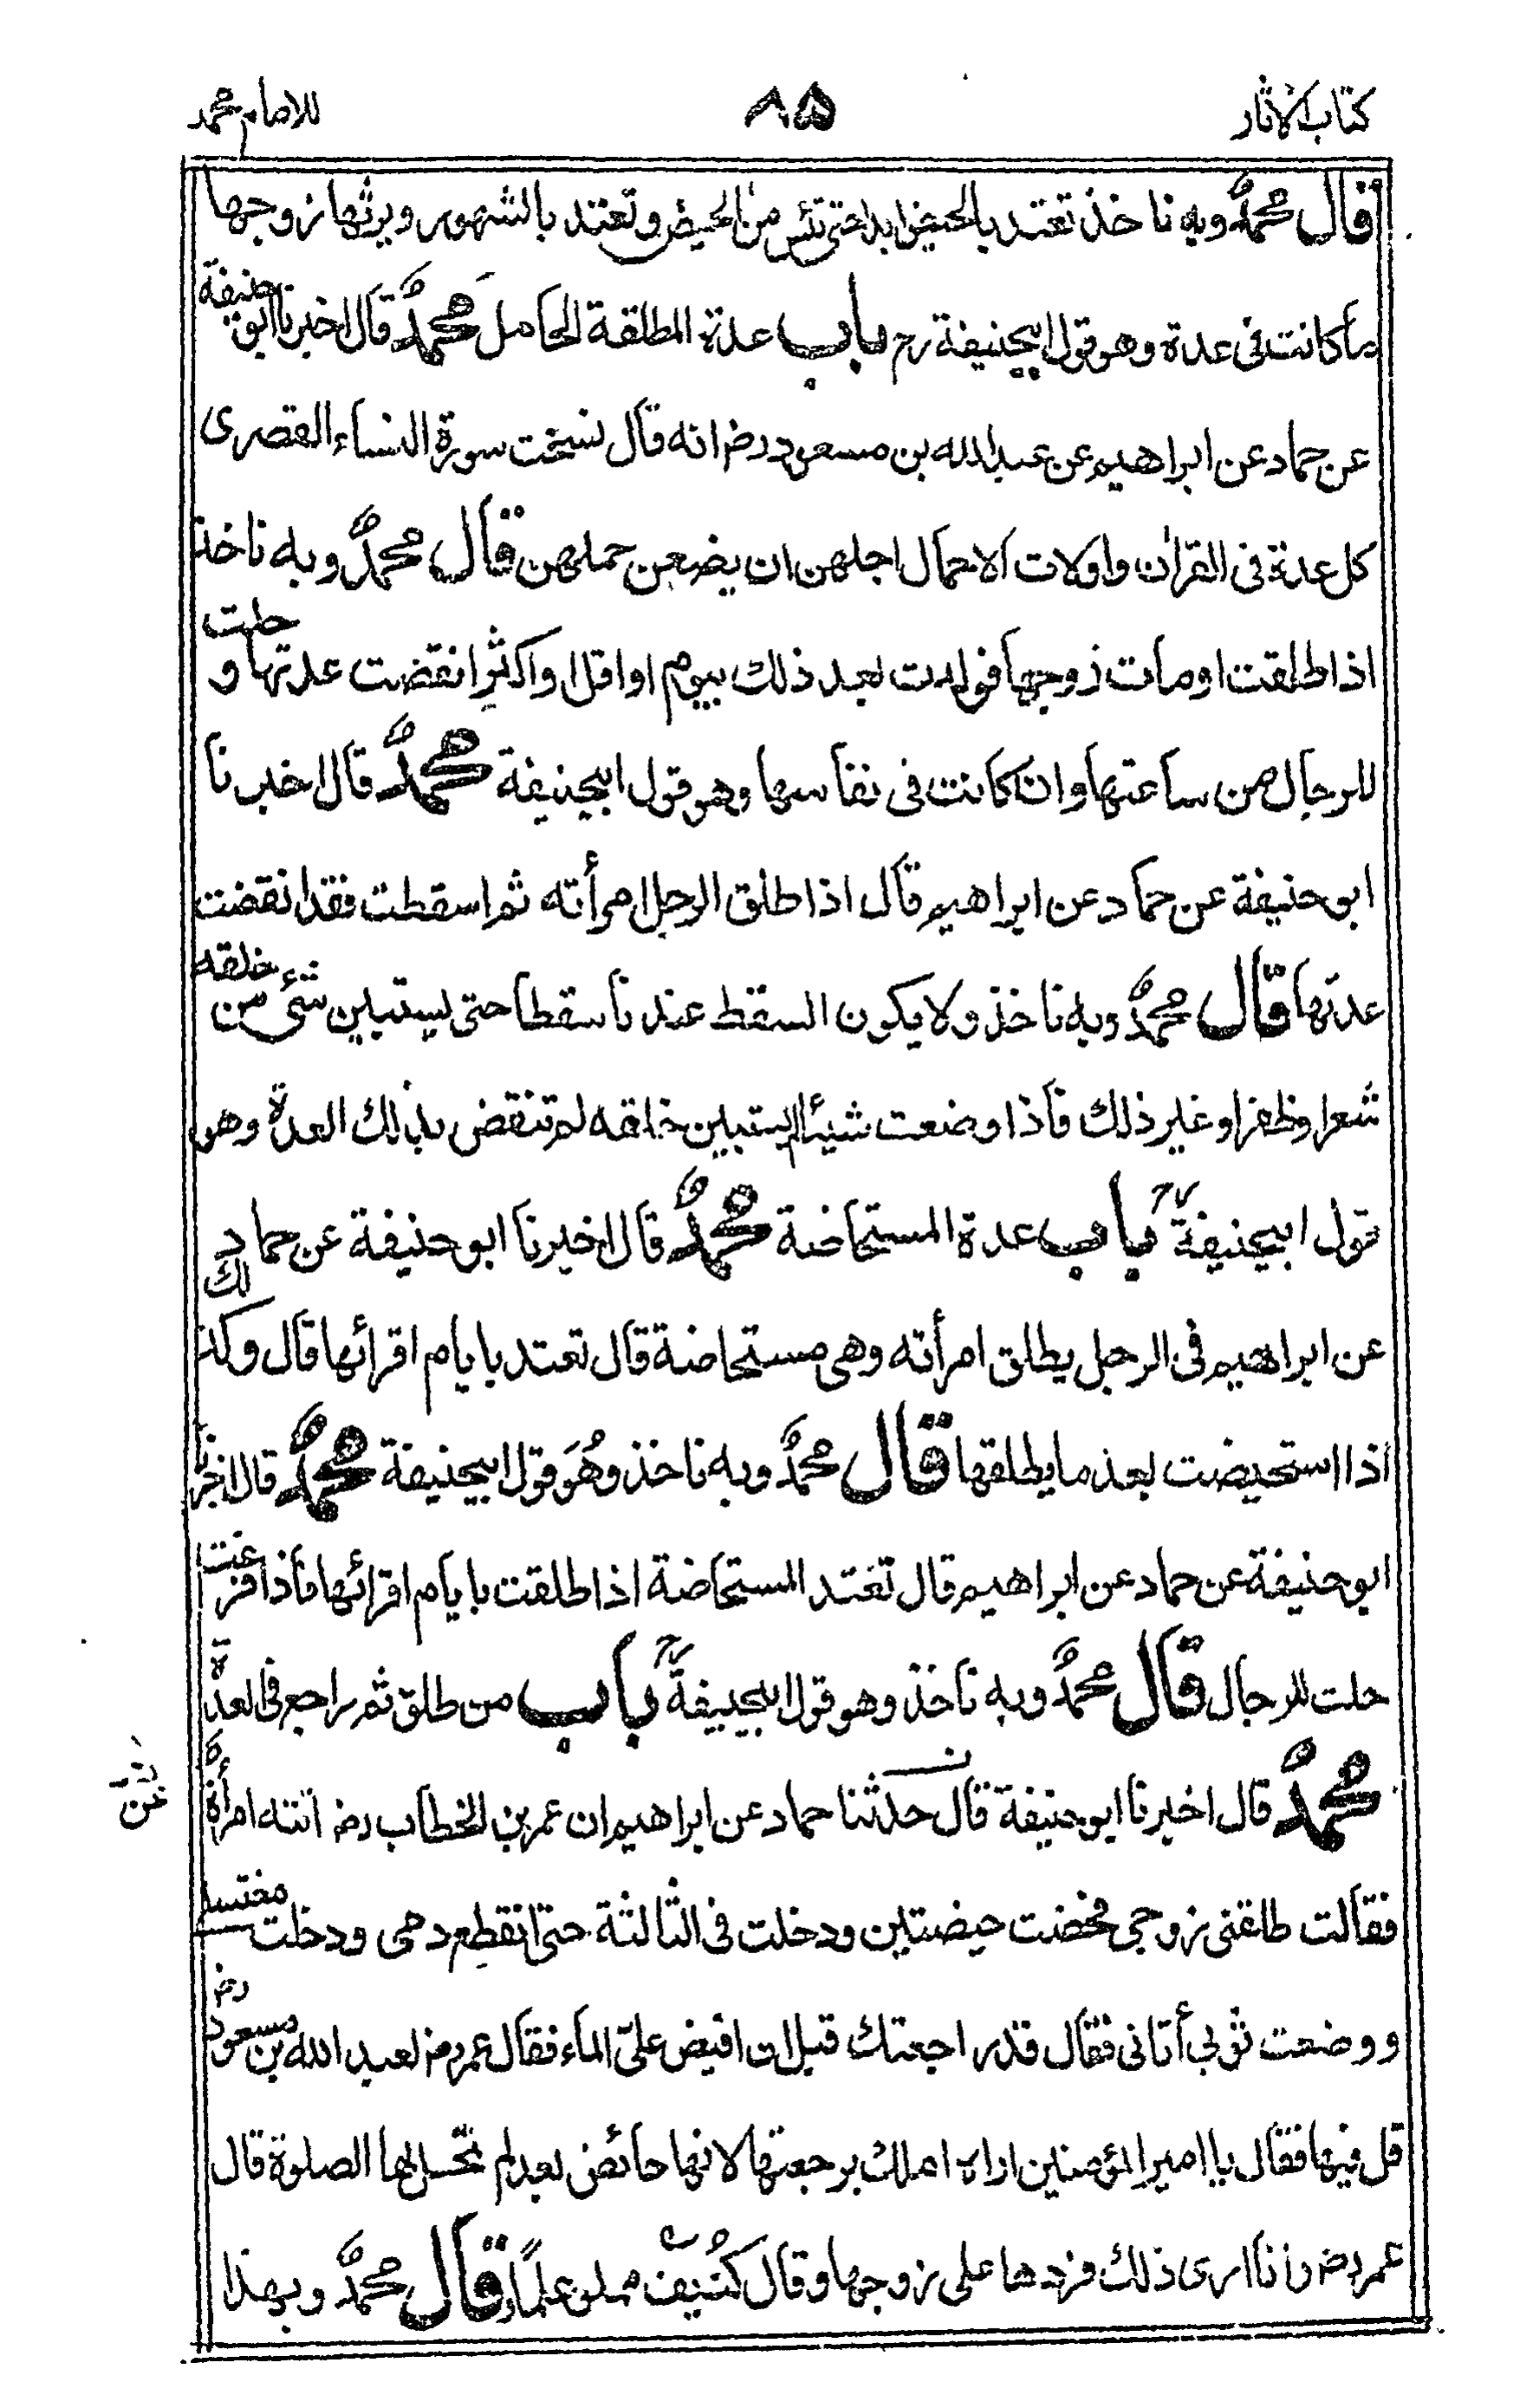 كتاب الآثار ٨٥ للامام محمد
قال محمد وبه ناخذ تعتد بالحيض ابدا حتى تئس من الحيض وتعتد بالشهور ويرثها زوجها
ما كانت فى عدة وهو قول ابيحنيفة رح باب عدة المطلقة الحامل محمد قال اخبرنا ابو حنيفة
عن حماد عن ابراهيم عن عبد الله بن مسعود رض انه قال نسخت سورة النساء القصرى
كل عدة فى القرآن واولات الاحمال اجلهن ان يضعن حملهن قال محمد وبه ناخذ
اذا طلقت او مات زوجها فولدت بعد ذلك بيوم او اقل او اكثر انقضت عدتها و حلت
للرجال من ساعتها وان كانت فى نفاسها وهو قول ابيحنيفة محمد قال اخبرنا
ابو حنيفة عن حماد عن ابراهيم قال اذا طلق الرجل امرأته ثم اسقطت فقد انقضت
عدتها قال محمد وبه ناخذ ولا يكون السقط عندنا سقطا حتى يستبين شئ من خلقه
شعر او ظفر او غير ذلك فاذا وضعت شيئا لم يستبين خلقه لم تنقض بذلك العدة وهو
قول ابيحنيفة رح باب عدة المستحاضة محمد قال اخبرنا ابو حنيفة عن حماد
عن ابراهيم فى الرجل يطلق امرأته وهى مستحاضة قال تعتد بايام اقرائها قال وكذلك
اذا استحيضت بعد ما يطلقها قال محمد وبه ناخذ وهُوَ قول ابيحنيفة محمد قال اخبرنا
ابو حنيفة عن حماد عن ابراهيم قال تعتد المستحاضة اذا طلقت بايام اقرائها فاذا فرغت
حلت للرجال قال محمد وبه ناخذ وهو قول ابيحنيفة رح باب من طلق ثم راجع فى العدة
محمد قال اخبرنا ابو حنيفة قال حدثنا حماد عن ابراهيم ان عمر بن الخطاب رض اتته امرأة
فقالت طلقنى زوجى فحضت حيضتين ودخلت فى الثالثة حتى انقطع دمى ودخلت مغتسلى
ووضعت ثوبى أتانى فقال قد راجعتك قبل ان افيض علىّ الماء فقال عمر رض لعبد الله بن مسعود رض
قل فيها فقال يا امير المؤمنين اراه املك برجعتها لانها حائض بعد لم تحل لها الصلوة قال
عمر رض وانا ارى ذلك فردها على زوجها وقال كُنَيْف مملو علمًا قال محمد وبهذا